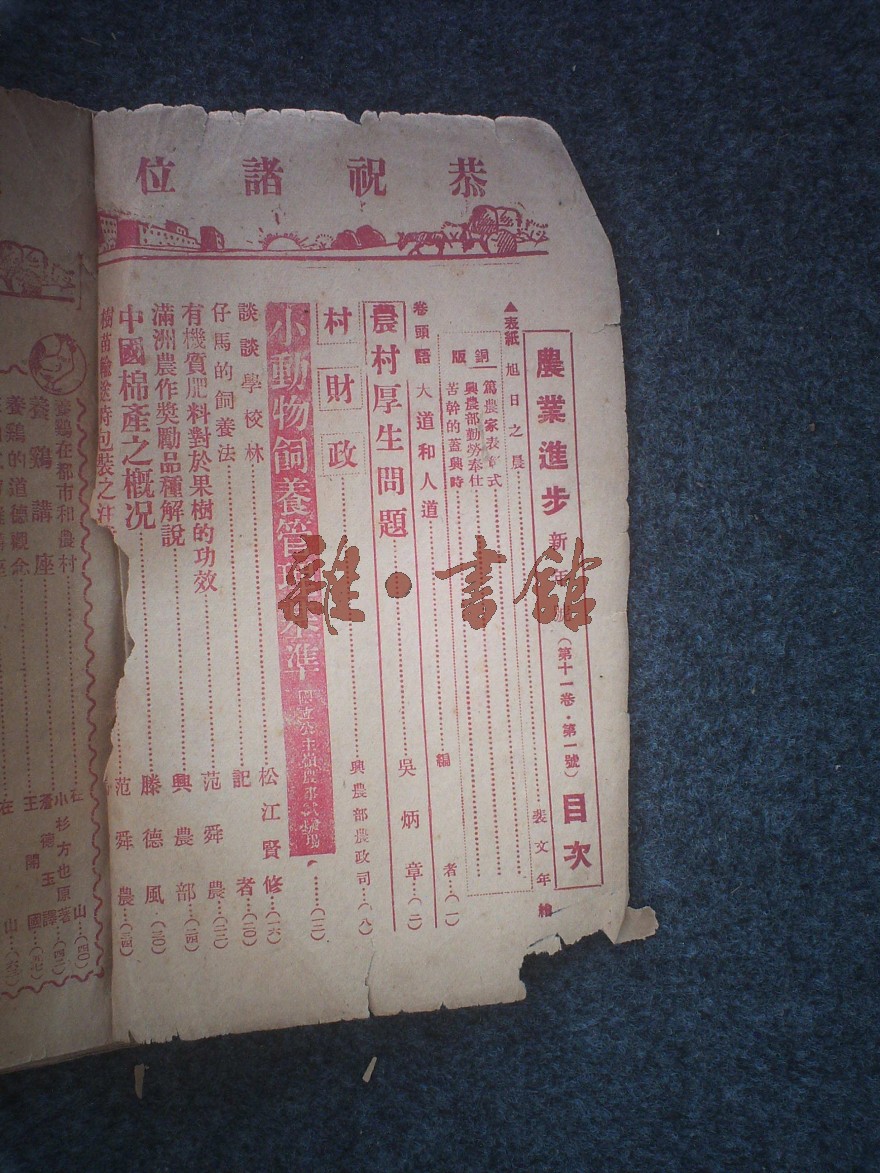 恭祝諸位
農業進步 新年號（第十一卷·第一號）目次
▲表紙 旭日之晨 裴文年繪
銅版
篤農家表彰式
興農部勤勞奉仕
苦幹的蓋興時
卷頭語 大道和人道 編者（一）
農村厚生問題 吳炳章（二）
村財政 興農部農政司（八）
小動物飼養管理基準 國立公主嶺農事試驗場（一二）
談談學校林 松江賢修（一六）
仔馬的飼養法 記者（二〇）
有機質肥料對於果樹的功效 范舜農（二二）
滿洲農作獎勵品種解說 興農部（二四）
中國棉產之概況 滕德風（三〇）
樹苗輸送時包裝之注 范舜農（三四）
養鷄講座
養鷄在都市和農村 山（四〇）
小杉方也原著
德玉譯（四二）
養鷄的道德觀念 王閣國
在山
雜·書館